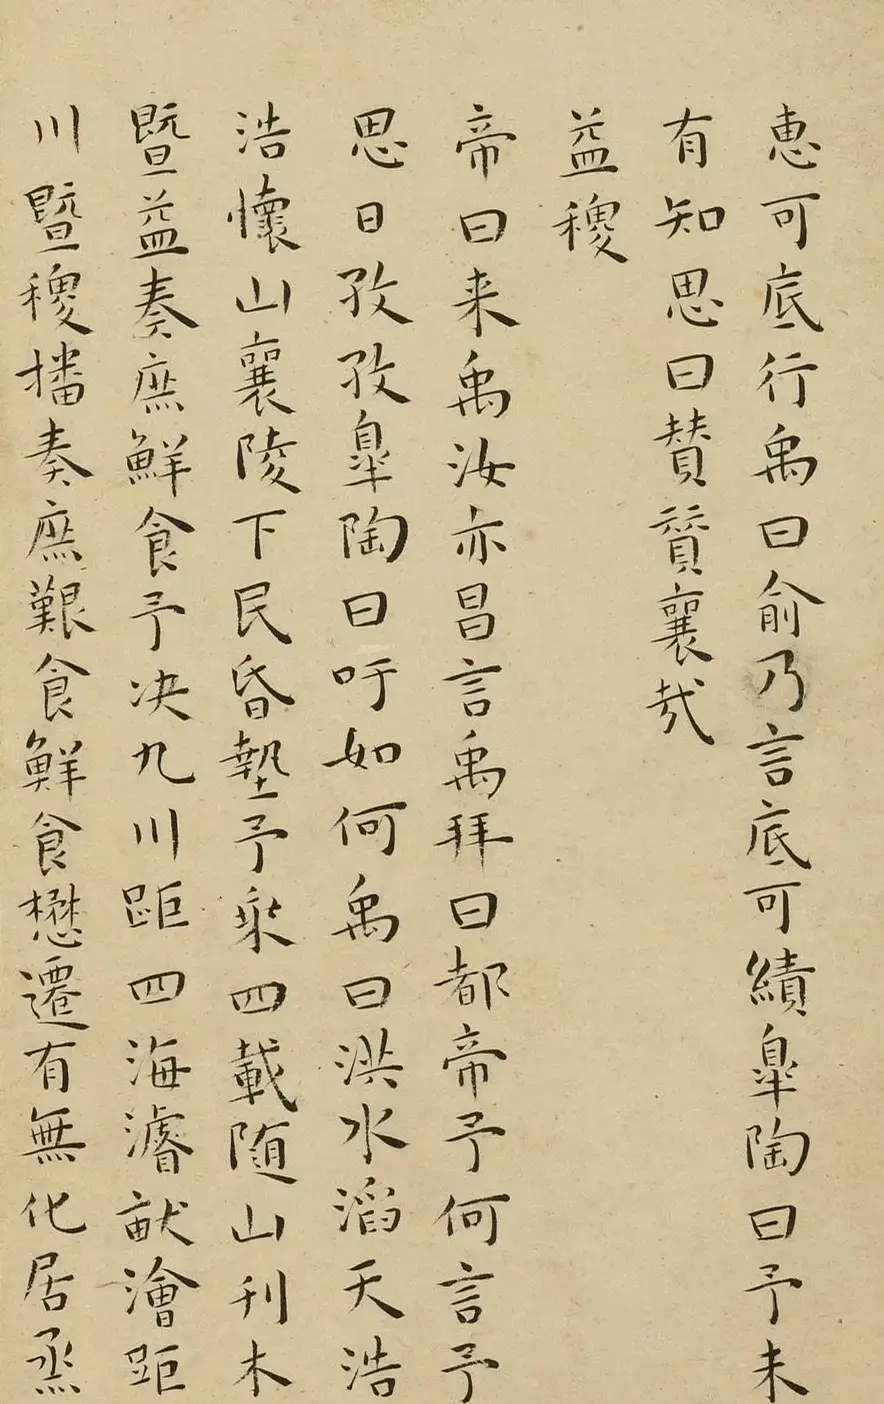 惠可底行禹曰俞乃言底可績皐陶曰予未
有知思曰賛賛襄哉
益稷
帝曰来禹汝亦昌言禹拜曰都帝予何言予
思日孜孜皐陶曰吁如何禹曰洪水滔天浩
浩懷山襄陵下民昏墊予乘四載随山刊木
暨益奏庶鮮食予决九川距四海濬畎澮距
川暨稷播奏庶艱食鮮食懋遷有無化居烝